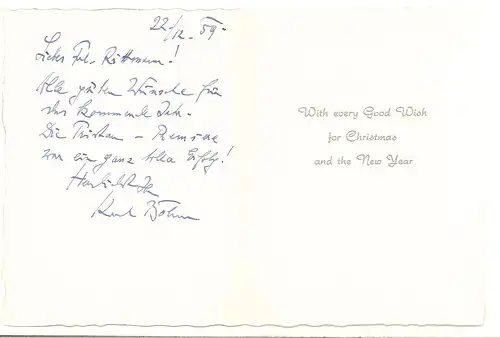 22/12. 59.
Liebes Frl. Röttmann!
Alle guten Wünsche für
das kommende Jahr.
Die Tristan - Premiere
war ein ganz toller Erfolg!
Herzlichst Ihr
Karl Böhm
With every Good Wish
for Christmas
and the New Year